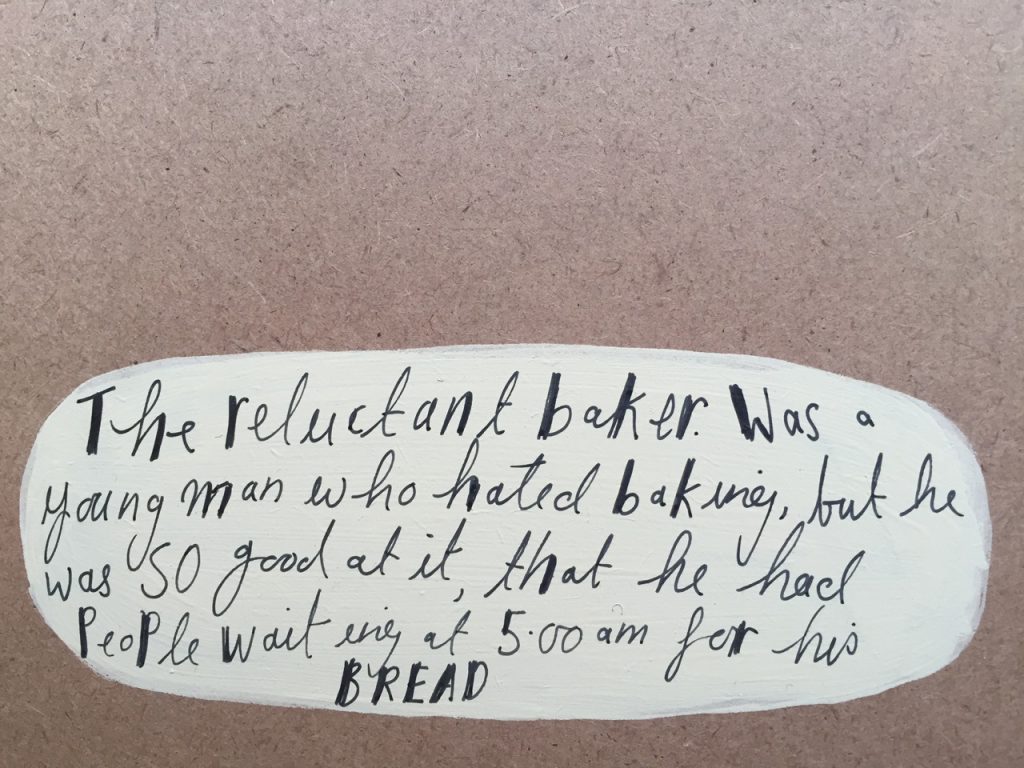 The reluctant baker. Was a
young man who hated baking, but he
was SO good at it, that he had
PeoPle waiting at 5.00 am for his
BREAD